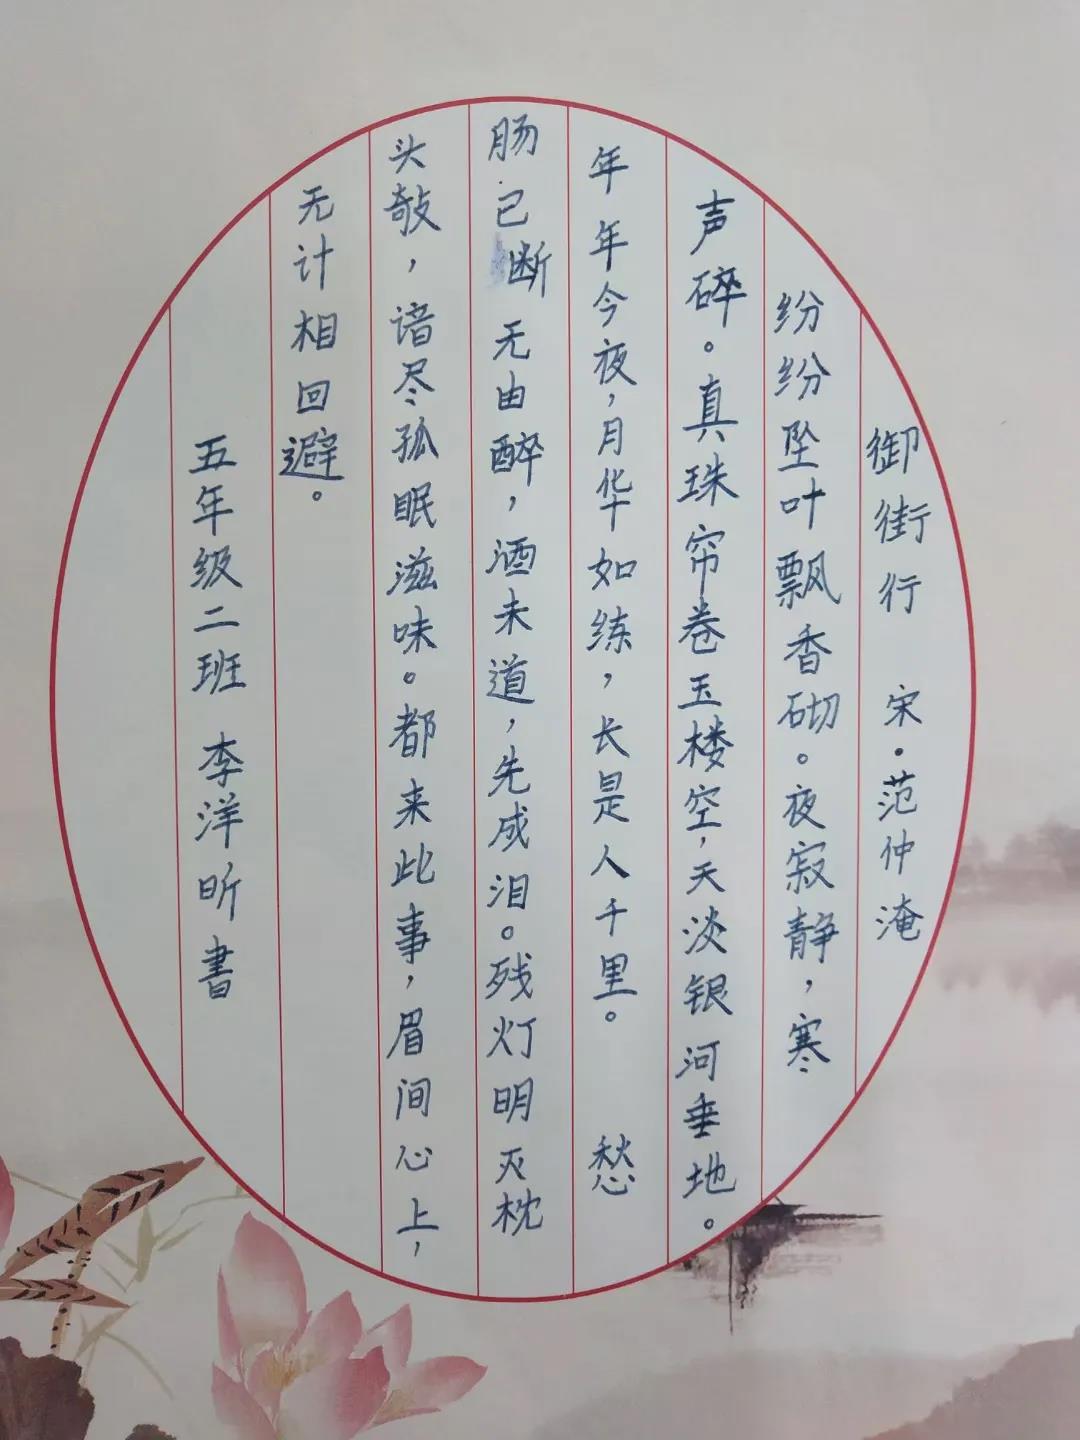 御街行 宋·范仲淹
纷纷坠叶飘香砌。夜寂静，寒
声碎。真珠帘卷玉楼空，天淡银河垂地。
年年今夜，月华如练，长是人千里。 愁
肠已断无由醉，酒未道，先成泪。残灯明灭枕
头敧，谙尽孤眠滋味。都来此事，眉间心上，
无计相回避。
五年级二班 李洋昕書